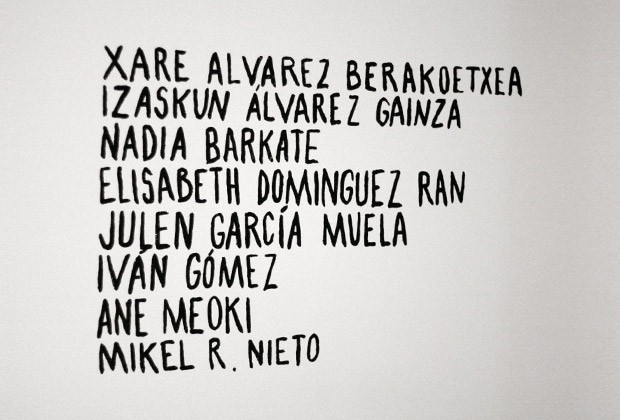 XARE ALVAREZ BERAKOETXEA
IZASKUN ÁLVAREZ GAINZA
NADIA BARKATE
ELISABETH DOMINGUEZ RAN
JULEN GARCÍA MUELA
IVÁN GÓMEZ
ANE MEOKI
MIKEL R. NIETO